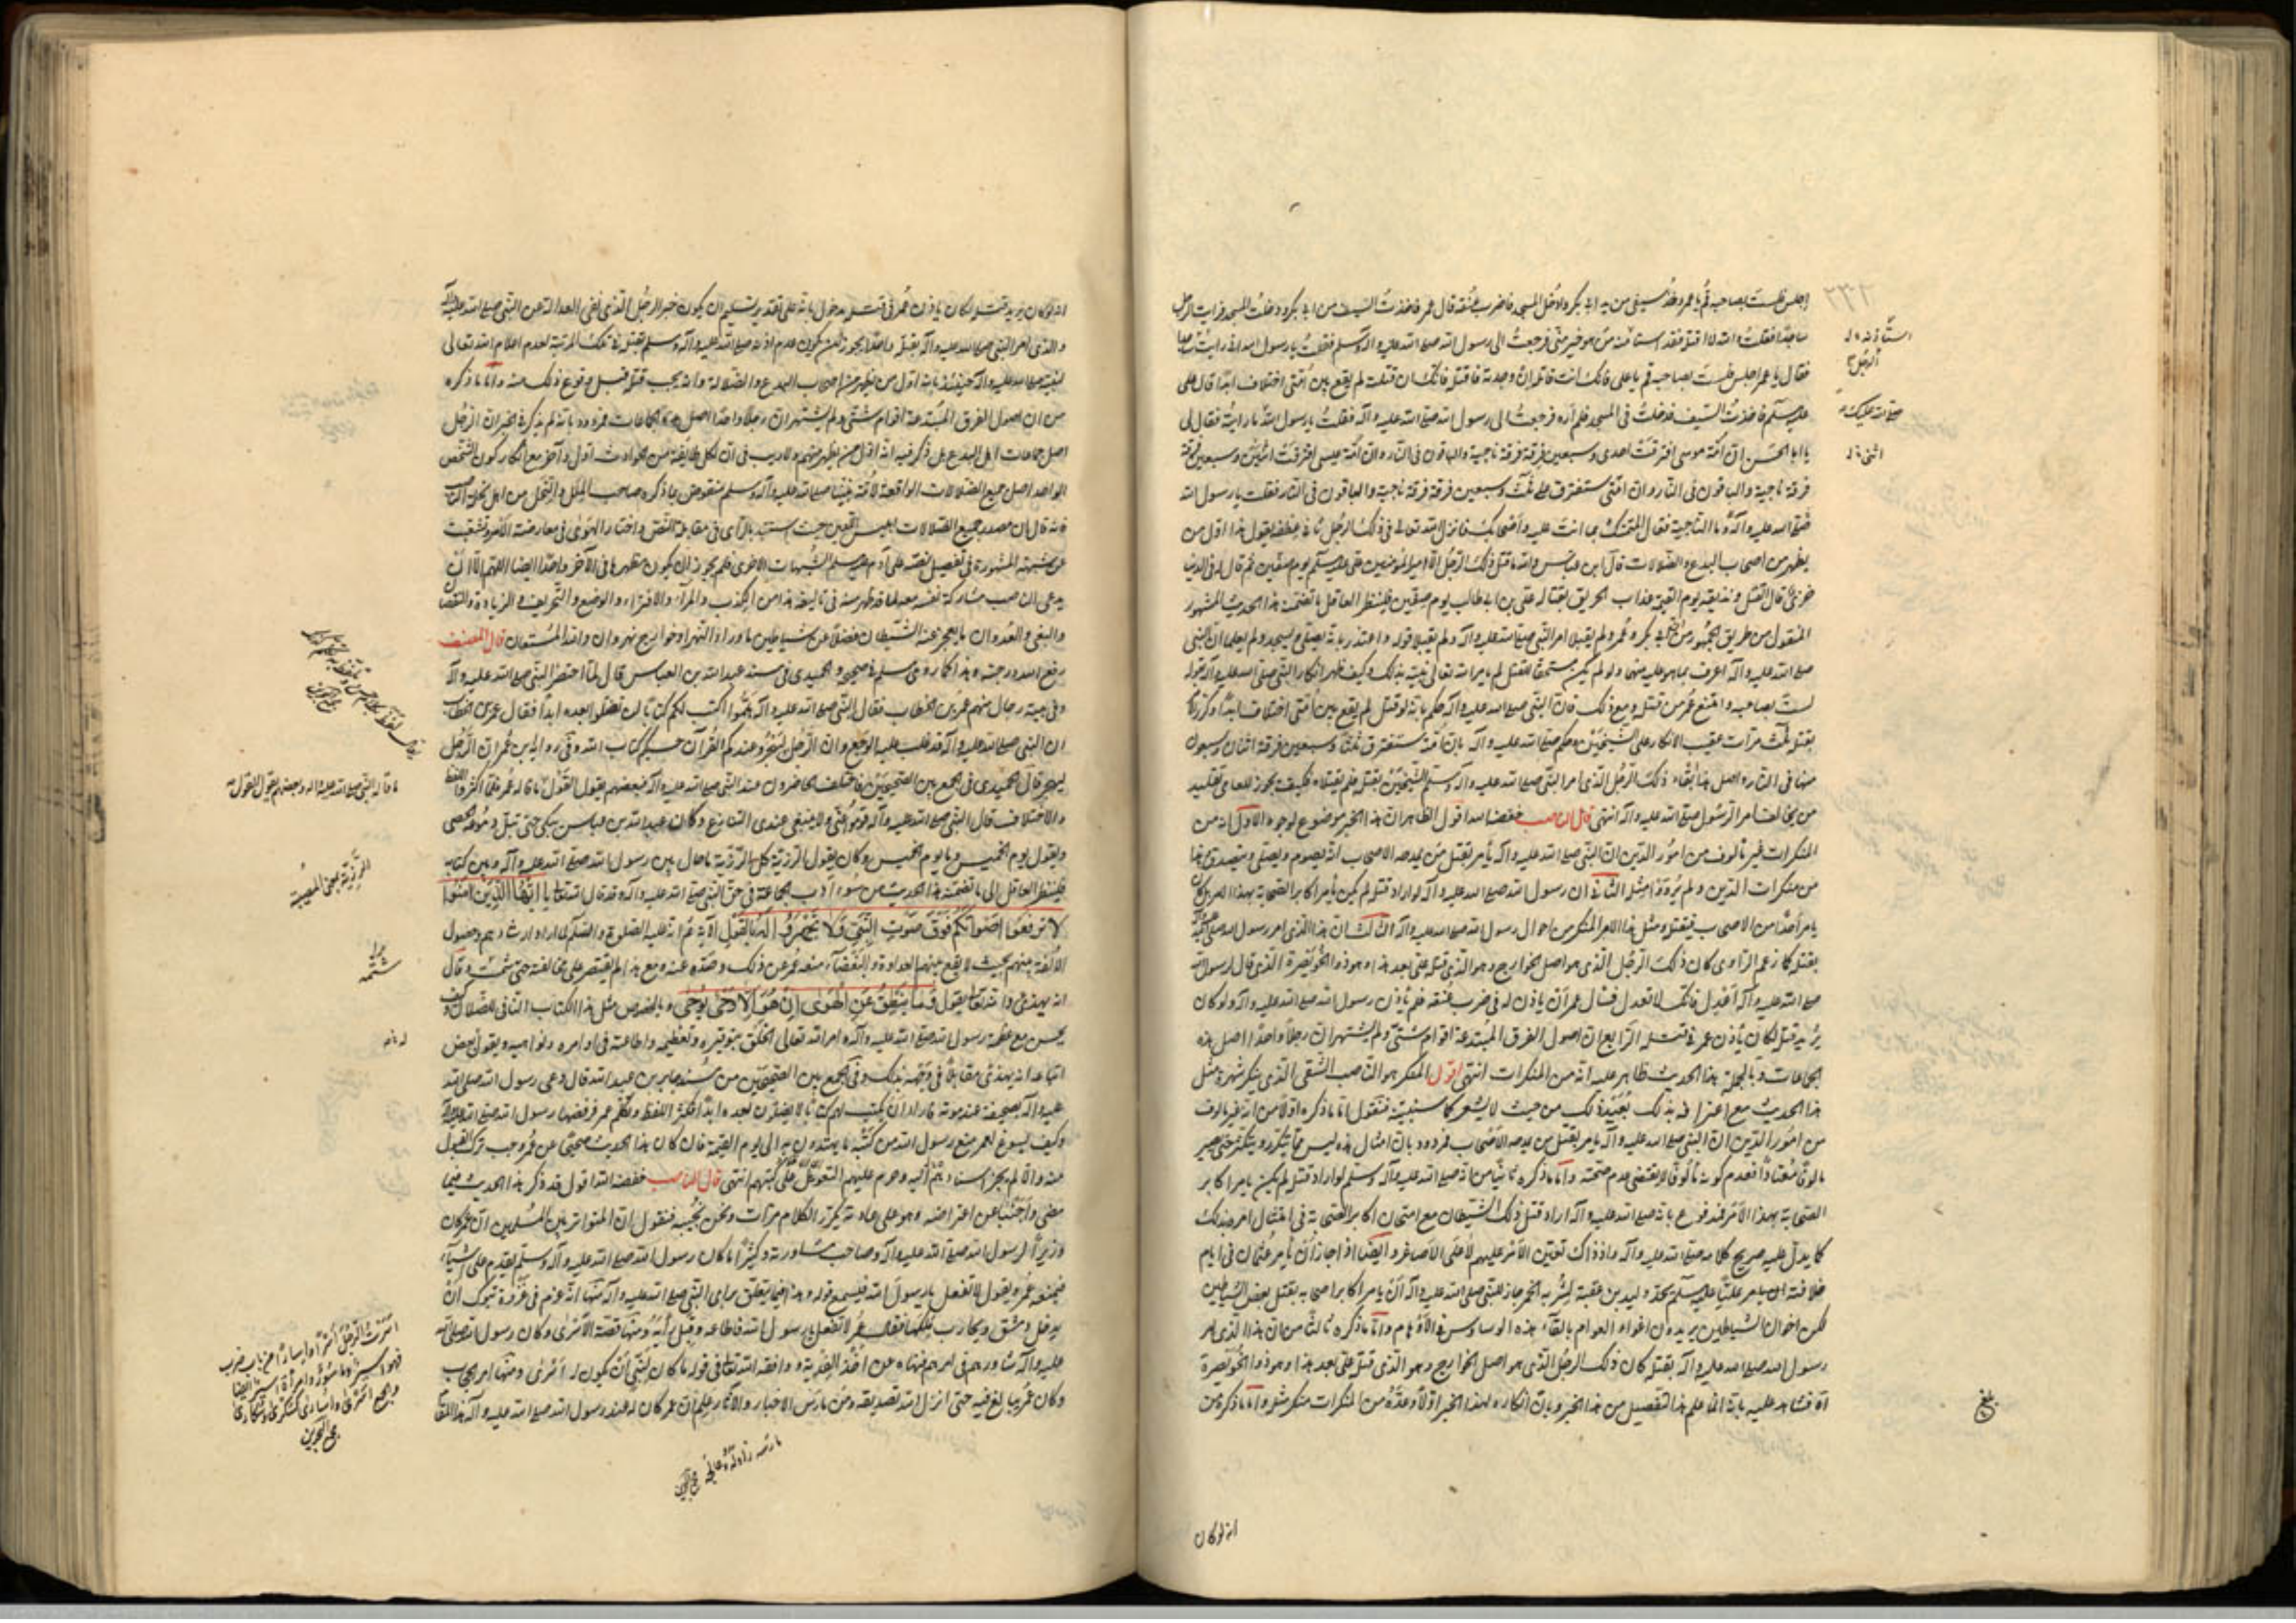 ٢٣٢
اجلس فلست بصاحبه قم يا عمر وخذ سيفي من يد ابي بكر وادخل المسجد فاضرب عنقه قال عمر فاخذت السيف من ابي بكر ودخلت المسجد فرايت الرجل
ساجدا فقلت والله لا اقتله فقد استامنه من هو خير مني فرجعت الى رسول الله صلى الله عليه وآله وسلم فقلت يا رسول الله اني رايت الرجل ساجدا
فقال يا عمر اجلس فلست بصاحبه قم يا علي فانك انت قاتله ان وجدته فاقتله فانك ان قتلته لم يقع بين امتي اختلاف ابدا قال علي
عليه السلم فاخذت السيف فدخلت في المسجد فلم اره فرجعت الى رسول الله صلى الله عليه وآله فقلت يا رسول الله ما رايته فقال لي
يا ابا الحسن ان امة موسى افترقت احدى وسبعين فرقة فرقة ناجية والباقون في النار وان امة عيسى افترقت اثنتين وسبعين فرقة
فرقة ناجية والباقون في النار وان امتي ستفترق على ثلث وسبعين فرقة فرقة ناجية والباقون في النار فقلت يا رسول الله
صلى الله عليه وآله وما الناجية فقال المتمسك بما انت عليه واصحابك فانزل الله تعالى في ذلك الرجل ثاني عطفه يقول هذا اول من
يظهر من اصحاب البدع والضلالات قال ابن عباس والله ما قتل ذلك الرجل الا امير المؤمنين علي عليه السلم يوم صفين ثم قال له في الدنيا
خزي قال القتل ونذيقه يوم القيمة عذاب الحريق بقتاله علي بن ابي طالب يوم صفين فلينظر العاقل ما تضمنه هذا الحديث المشهور
المنقول من طريق الجمهور من ابي بكر وعمر ولم يقبلا امر النبي صلى الله عليه وآله ولم يقبلا قوله واعتذر بانه يصلي ويسجد ولم يعلما ان النبي
صلى الله عليه وآله اعرف بما هو عليه منهما ولو لم يكن مستحقا للقتل لم يامر الله تعالى نبيه بذلك وكيف ظهر انكار النبي صلى الله عليه وآله بقوله
لست بصاحبه وامتنع عمر من قتله ومع ذلك فان النبي صلى الله عليه وآله حكم بانه لو قتل لم يقع بين امتي اختلاف ابدا وكرر الامر
بقتله ثلث مرات عقيب الانكار على الشيخين وحكم صلى الله عليه وآله بان امته ستفترق ثلثا وسبعين فرقة اثنان وسبعون
منها في النار واصل هذا بقاء ذلك الرجل الذي امر النبي صلى الله عليه وآله وسلم الشيخين بقتله فلم يقتلاه فكيف يجوز للعامي تقليد
من يخالف امر الرسول صلى الله عليه وآله انتهى قال الناصب خفضه الله اقول الظاهر ان هذا الخبر موضوع لوجوه الاول انه من
المنكرات غير مالوف من امور الدين ان النبي صلى الله عليه وآله يأمر بقتل من يمدحه الاصحاب انه يصوم ويصلي ويتصدق هذا
من منكرات الدين ولم يرد مثله الثاني ان رسول الله صلى الله عليه وآله لو اراد قتله لم يكن يأمر اكابر الصحابة بهذا الامر بل كان
يامر احدا من الاصحاب فيقتله ومثل هذا الامر المنكر من احوال رسول الله صلى الله عليه وآله الثالث ان هذا الذي امر رسول الله صلى الله عليه وآله
بقتله كما زعم الراوي كان ذلك الرجل الذي هو اصل الخوارج وهو الذي قتله علي بعد هذا وهو ذو الخويصرة الذي قال لرسول الله
صلى الله عليه وآله اعدل فانك لا تعدل فسال عمر ان ياذن له في ضرب عنقه فلم يأذن رسول الله صلى الله عليه وآله ولو كان
يريد قتله لكان يأذن عمر في قتله الرابع ان اصول الفرق المبتدعة اقوام شتى ولم يشتهر ان رجلا واحدا اصل هذه
الجماعات وبالجملة هذا الحديث ظاهر عليه انه من المنكرات انتهى اقول المنكر هو الناصب الشقي الذي ينكر شهرة مثل
هذا الحديث مع اعترافه بذلك بعيد ذلك من حيث لا يشعر كما سننبه فنقول اما ما ذكره اولا من انه غير مالوف
من امور الدين ان النبي صلى الله عليه وآله يامر بقتل من يمدحه الاصحاب فمردود بان امثال هذه ليس مما يتكرر ويتكثر حتى يصير
مالوفا معتادا فعدم كونه مالوفا لا يقتضي عدم صحته واما ما ذكره ثانيا من انه صلى الله عليه وآله وسلم لو اراد قتله لم يكن يامر اكابر
الصحابة بهذا الامر فمدفوع بانه صلى الله عليه وآله اراد قتل ذلك الشيطان مع امتحان اكابر الصحابة في امتثال امره بذلك
كما يدل عليه صريح كلامه صلى الله عليه وآله واذ ذاك تعين الامر عليهم لا على الاصاغر وايضا اذا جاز ان يأمر عثمان في ايام
خلافته بامر عليا عليه السلم بحد وليد بن عقبة لشربه الخمر جاز للنبي صلى الله عليه وآله ان يامر اكابر اصحابه بقتل بعض الشياطين
لكن اخوان الشياطين يريدون اغواء العوام بالقاء هذه الوساوس في الاوهام واما ما ذكره ثالثا من ان هذا الذي امر
رسول الله صلى الله عليه وآله بقتله كان ذلك الرجل الذي هو اصل الخوارج وهو الذي قتله علي بعد هذا وهو ذو الخويصرة
اه فشاهد عليه بانه انما علم هذا التفصيل من هذا الخبر وبان انكاره لهذا الخبر اولا وعده من المنكرات منكر مثله واما ما ذكره من
بلغ
انه لو كان
انه لو كان يريد قتله لكان ياذن عمر في قتله مدخول بانه على تقدير تسليم ان يكون خبر الرجل الذي نفى العدالة عن النبي صلى الله عليه وآله
والذي امر النبي صلى الله عليه وآله بقتله واحدا يجوز ان يكون عدم اذنه صلى الله عليه وآله وسلم بقتله في تلك المرتبة لعدم اعلام الله تعالى
لنبيه صلى الله عليه وآله حينئذ بانه اول من يظهر من اصحاب البدع والضلالة وانه يجب قتله قبل وقوع ذلك منه واما ما ذكره
من ان اصول الفرق المبتدعة اقوام شتى ولم يشتهر ان رجلا واحدا اصل هذه الجماعات فمردود بانه لم يذكر في الخبر ان الرجل
اصل جماعات اهل البدع بل ذكر فيه انه اول من يظهر منهم ولا ريب في ان لكل طايفة من الحوادث اول وآخر مع انكار كون الشخص
الواحد اصل جميع الضلالات الواقعة لامة نبينا صلى الله عليه وآله وسلم منقوض بما ذكره صاحب الملل والنحل من اهل نحلة الناصب
فانه قال ان مصدر جميع الضلالات ابليس اللعين حيث استبد بالراي في مقابلة النص واختار الهوى في معارضة الامر وتشعبت
عن شبهته المشهورة في تفضيل نفسه على آدم عليه السلم الشبهات الاخرى فلم يجوز ان يكون مظهرها في الآخر واحدا ايضا اللهم الا ان
يدعي الناصب مشاركة نفسه معه لما قد ظهر منه في تاليفه هذا من الكذب والمراء والافتراء والوضع والتحريف والزيادة والنقصان
والبغي والعدوان ما يعجز عنه الشيطان فضلا عن شياطين ماوراء النهر او خوارج نهروان والله المستعان قال المصنف
رفع الله درجته وهذا كما روى مسلم في صحيحه والحميدي في مسند عبد الله بن العباس قال لما احتضر النبي صلى الله عليه وآله
وفي بيته رجال منهم عمر بن الخطاب فقال النبي صلى الله عليه وآله هلموا اكتب لكم كتابا لن تضلوا بعده ابدا فقال عمر بن الخطاب
ان النبي صلى الله عليه وآله قد غلب عليه الوجع وان الرجل ليهجر وعندكم القرآن حسبكم كتاب الله وفي رواية ابن عمر ان الرجل
ليهجر قال الحميدي في الجمع بين الصحيحين فاختلف الحاضرون عند النبي صلى الله عليه وآله فبعضهم يقول القول ما قاله عمر فلما اكثروا اللغط
والاختلاف قال النبي صلى الله عليه وآله قوموا عني ولا ينبغي عندي التنازع وكان عبد الله بن عباس يبكي حتى تبل دموعه الحصى
ويقول يوم الخميس وما يوم الخميس وكان يقول الرزية كل الرزية ما حال بين رسول الله صلى الله عليه وآله وبين كتابه
فلينظر العاقل الى ما تضمنه هذا الحديث من سوء ادب الجماعة في حق النبي صلى الله عليه وآله وقد قال الله تعالى يا ايها الذين آمنوا
لا ترفعوا اصواتكم فوق صوت النبي ولا تجهروا له بالقول الآية ثم انه عليه الصلوة والسلم لما اراد ارشادهم وحصول
الالفة بينهم بحيث لا يقع بينهم العداوة والبغضاء منعه عمر عن ذلك وصده عنه ومع هذا لم يقتصر على مخالفته حتى شتمه وقال
انه يهذي والله تعالى يقول وما ينطق عن الهوى ان هو الا وحي يوحى وبالخصوص مثل هذا الكتاب النافي للضلال وكيف
يحسن مع عظمة رسول الله صلى الله عليه وآله وامر الله تعالى الخلق بتوقيره وتعظيمه واطاعته في اوامره ونواهيه ويقول بعض
اتباعه انه يهذي مقابلا في وجهه بذلك وفي الجمع بين الصحيحين من مسند جابر بن عبد الله قال دعى رسول الله صلى الله
عليه وآله بصحيفة عند موته فاراد ان يكتب لهم كتابا لا يضلون بعده ابدا فكثر اللغط وتكلم عمر فرفضها رسول الله صلى الله عليه وآله
وكيف يسوغ لعمر منع رسول الله من كتبه ما يهتدون به الى يوم القيمة فان كان هذا الحديث صحيحا عن عمر وجب ترك القبول
عنه والا لم يجز اسناده اليه وحرم عليهم التعويل على كتبهم انتهى قال الناصب خفضه الله اقول قد ذكر هذا الحديث فيما
مضى واجبنا عن اعتراضه وهو على عادته يكرر الكلام مرات ونحن نجيبه فنقول ان المتواتر بين المسلمين ان عمر كان
وزيرا لرسول الله صلى الله عليه وآله وصاحب مشاورته وكثيرا ما كان رسول الله صلى الله عليه وآله وسلم يقدم على اشياء
فيمنعه عمر ويقول لا تفعل يا رسول الله فيسمع قوله وهذا فيما يتعلق براى النبي صلى الله عليه وآله منها انه عزم في غزوة تبوك ان
يدخل دمشق ويحارب ملكها فقال عمر لا تفعل يا رسول الله فاطاعه وقبل رأيه ومنها قصة الاسرى وكان رسول الله صلى الله
عليه وآله شاوره في امرهم فنهاه عن اخذ الفدية ووافقه الله تعالى في قوله ما كان لنبي ان يكون له اسرى ومنها امر الحجاب
وكان عمر يبالغ فيه حتى انزل الله تصديقه ومن مارس الاخبار والآثار علم ان عمر كان له عند رسول الله صلى الله عليه وآله هذا المقام
ما قاله النبي صلى الله عليه وآله وبعضهم يقول القول
الرزية بمعنى المصيبة
شتمه